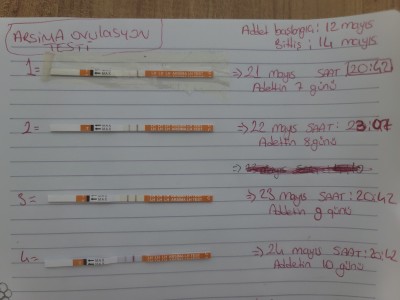 ARSİMA OVULASYON TESTİ
Adet başlangıcı: 12 mayıs
Bitiş: 14 mayıs
1= => 21 mayıs SAAT 20:42
Adettin 7 günü
2= => 22 mayıs SAAT: 23:07
Adettin 8 günü
3= => 23 mayıs SAAT: 20:42
Adettin 9 günü
4= => 24 mayıs SAAT: 20:42
Addetin 10 günü